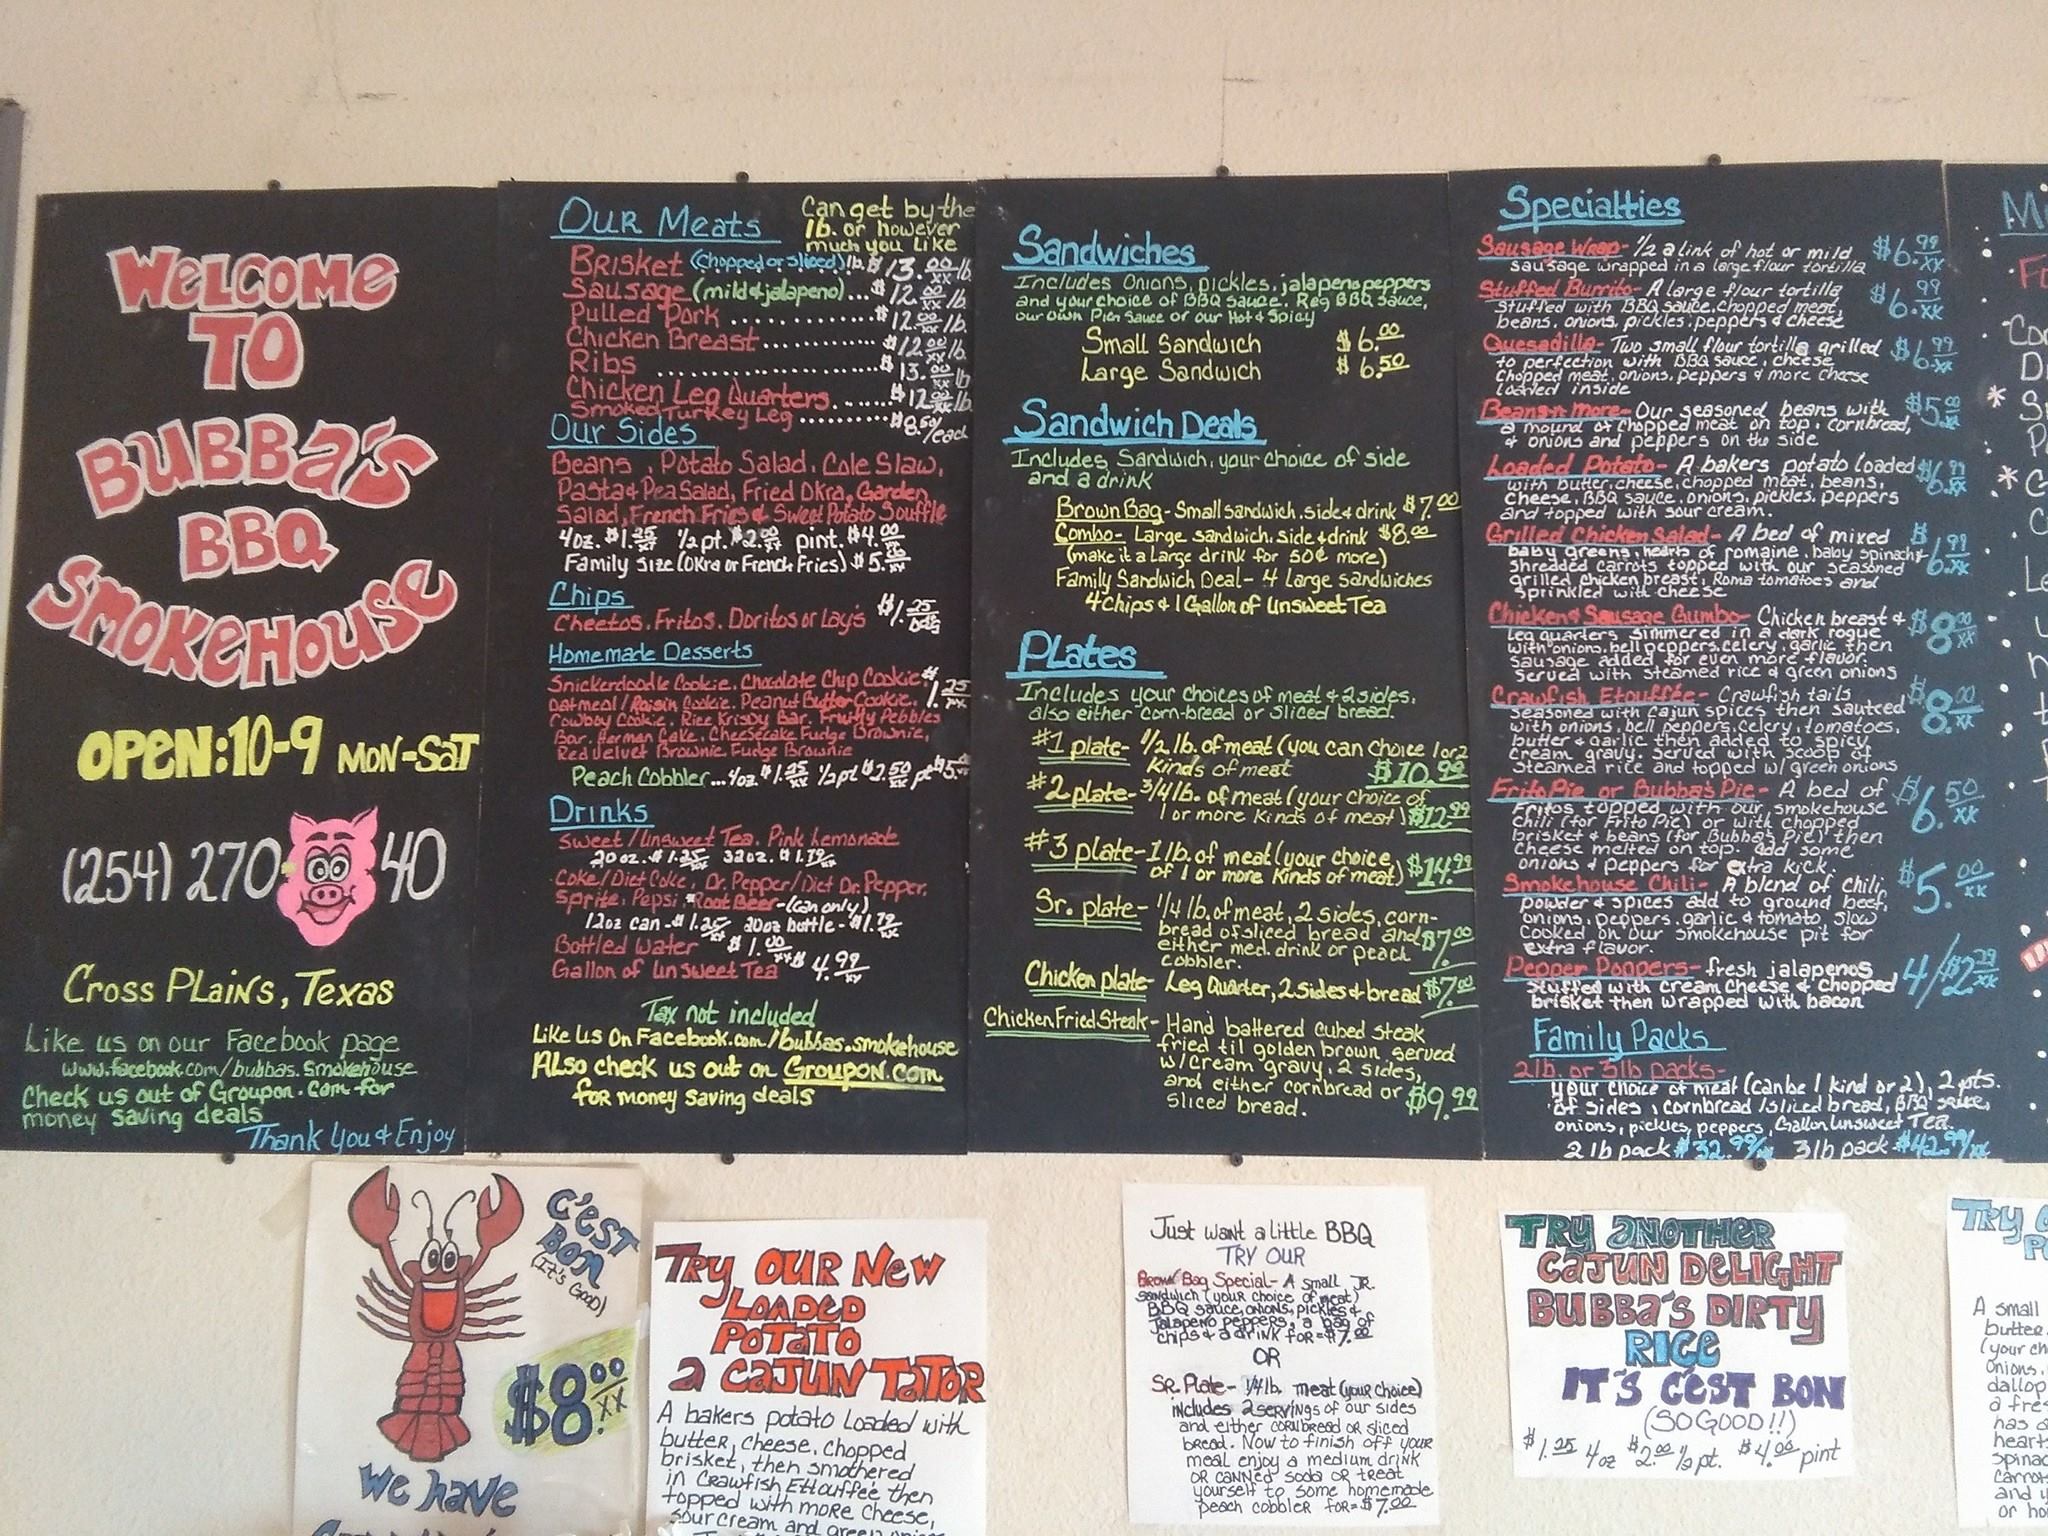 WELCOME
TO
BUBBA'S
BBQ
SMOKEHOUSE
OPEN: 10-9 MON-SAT
(254) 270 40
CROSS PLAINS, TEXAS
Like us on our Facebook page
www.facebook.com/bubbas.smokehouse
Check us out of Groupon.com for
money saving deals
Thank You & Enjoy
OUR MEATS
Can get by the
lb. or however
much you like
BRISKET (chopped or sliced) lb. $13.00/xx lb.
Sausage (mild & jalapeno)... $12.00/xx lb.
Pulled Pork ............ $12.00/xx lb.
Chicken Breast .......... $12.00/xx lb.
Ribs .................... $13.00/xx lb
Chicken Leg Quarters ...... $12.00/xx lb.
Smoked Turkey Leg ........ $8.50/each
Our Sides
Beans, Potato Salad, Cole Slaw,
Pasta & Pea Salad, Fried Okra, Garden
Salad, French Fries & Sweet Potato Souffle
4oz. $1.25/xx 1/2 pt. $2.00/xx pint. $4.00/xx
Family Size (Okra or French Fries) $5.
Chips
Cheetos, Fritos, Doritos or Lay's $1.25
Homemade Desserts
Snickerdoodle Cookie, Chocolate Chip Cookie $1.25/xx
Oatmeal/Raisin Cookie, Peanut Butter Cookie,
Cowboy Cookie, Rice Krispy Bar, Fruity Pebbles
Bar, Herman Cake, Cheesecake Fudge Brownie,
Red Velvet Brownie, Fudge Brownie
Peach Cobbler...4oz. $1.25/xx 1/2 pt $2.50/xx pt $5.
Drinks
Sweet/Unsweet Tea, Pink Lemonade
20oz. $1.25/xx 32oz. $1.79/xx
Coke/Diet Coke, Dr. Pepper/Diet Dr. Pepper,
Sprite, Pepsi, *Root Beer-(can only)
12oz can-$1.25/xx 20oz bottle-$1.79/xx
Bottled Water $1.00/xx
Gallon of Unsweet Tea $4.99/xx
Tax not included
Like Us On Facebook.com/bubbas.smokehouse
Also check us out on Groupon.com
for money saving deals
Sandwiches
Includes Onions, pickles, jalapeno peppers
and your choice of BBQ sauce. Reg BBQ Sauce,
our own Sauce or our Hot & Spicy
Small Sandwich $6.00
Large Sandwich $6.50
Sandwich Deals
Includes Sandwich, your choice of side
and a drink
Brown Bag- Small sandwich, side & drink $7.00
Combo- Large sandwich, side & drink $8.00
(make it a Large drink for 50¢ more)
Family Sandwich Deal- 4 Large sandwiches
4 chips & 1 Gallon of Unsweet Tea
Plates
Includes your choices of meat & 2 sides,
also either corn-bread or sliced bread.
#1 plate- 1/2 lb. of meat (you can choose 1 or 2
kinds of meat $10.99
#2 plate- 3/4 lb. of meat (your choice of
1 or more kinds of meat) $12.99
#3 plate- 1 lb. of meat (your choice
of 1 or more kinds of meat) $14.99
Sr. plate- 1/4 lb. of meat, 2 sides, corn-
bread of sliced bread and
either med. drink or peach
cobbler. $7.00
Chicken plate- Leg Quarter, 2 sides & bread $7.00
Chicken Fried Steak- Hand battered cubed steak
fried til golden brown, served
w/cream gravy, 2 sides,
and either cornbread or
sliced bread. $9.99
Specialties
Sausage Wrap- 1/2 a link of hot or mild $6.99/xx
sausage wrapped in a large flour tortilla
Stuffed Burrito- A large flour tortilla $6.99/xx
stuffed with BBQ sauce, chopped meat,
beans, onions, pickles, peppers & cheese
Quesadilla- Two small flour tortilla grilled $6.99/xx
to perfection with BBQ sauce, cheese,
chopped meat, onions, peppers & more cheese
loaded inside
Beans-n-More- Our seasoned beans with $5.00/xx
a mound of chopped meat on top, cornbread,
& onions and peppers on the side
Loaded Potato- A bakers potato loaded $6.99/xx
with butter, cheese, chopped meat, beans,
cheese, BBQ sauce, onions, pickles, peppers
and topped with sour cream.
Grilled Chicken Salad- A bed of mixed $6.99/xx
baby greens, hearts of romaine, baby spinach &
shredded carrots topped with our seasoned
grilled chicken breast, Roma tomatoes and
sprinkled with cheese
Chicken & Sausage Gumbo- Chicken breast & $8.00/xx
leg quarters simmered in a dark rogue
with onions, bell peppers, celery, garlic then
sausage added for even more flavor.
served with steamed rice & green onions
Crawfish Etouffée- Crawfish tails $8.00/xx
seasoned with Cajun spices then sauteed
with onions, bell peppers, celery, tomatoes,
butter & garlic then added to spicy
cream gravy. served with scoops of
steamed rice and topped w/green onions
Frito Pie or Bubba's Pie- A bed of $6.50/xx
Fritos topped with our smokehouse
chili (for Frito Pie) or with chopped
brisket & beans (for Bubba's Pie) then
cheese melted on top. add some
onions & peppers for extra kick.
Smokehouse Chili- A blend of chili $5.00/xx
powder & spices add to ground beef,
onions, peppers, garlic & tomato, slow
cooked on our smokehouse pit for
extra flavor.
Pepper Poppers- fresh jalapenos 4/$2.29/xx
stuffed with cream cheese & chopped
brisket then wrapped with bacon
Family Packs
2lb. or 3lb packs-
your choice of meat (can be 1 kind or 2), 2 pts.
of sides, cornbread/sliced bread, BBQ sauce,
onions, pickles, peppers, Gallon Unsweet Tea.
2 lb pack $32.99/xx 3lb pack $42.99/xx
C'EST
BON
(IT'S GOOD)
$8.00/xx
We have
TRY OUR NEW
LOADED
POTATO
a CAJUN TATOR
A bakers potato loaded with
butter, cheese, chopped
brisket, then smothered
in Crawfish Ettouffée then
topped with more cheese,
sour cream and green onions
Just want a little BBQ
TRY OUR
Brown Bag Special- A small JR.
sandwich (your choice of meat)
BBQ sauce, onions, pickles &
jalapeno peppers, a bag of
chips & a drink for=$7.00
OR
SR. Plate- 1/4 lb. meat (your choice)
includes 2 servings of our sides
and either cornbread or sliced
bread. Now to finish off your
meal enjoy a medium drink
or canned soda or treat
yourself to some homemade
peach cobbler for=$7.00
TRY ANOTHER
CAJUN DELIGHT
BUBBA'S DIRTY
RICE
IT'S C'EST BON
(SO GOOD!!)
$1.25 4oz $2.00 1/2 pt. $4.00 pint
TRY
A small
butter
(your ch
onions,
dallop
a fre
has a
heart
spinac
carrot
and y
or ho